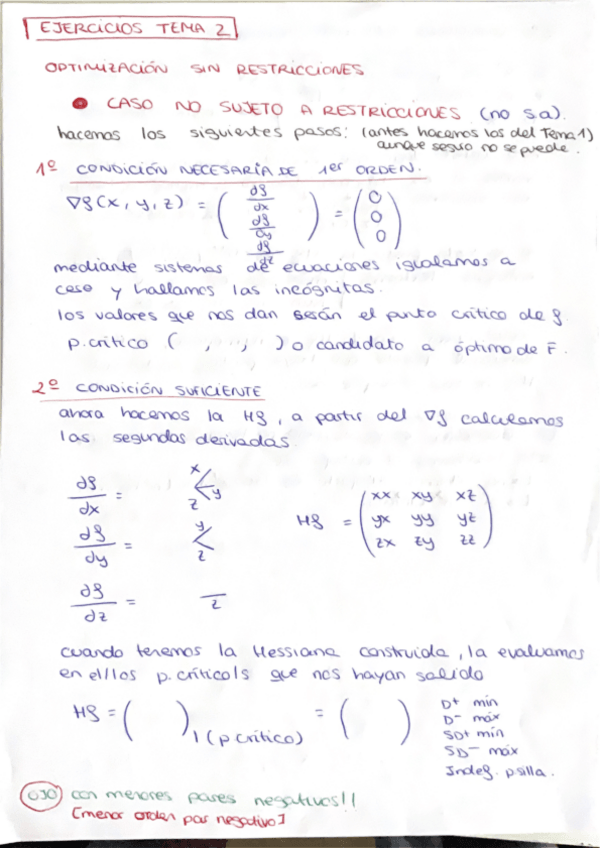 EJERCICIOS TEMA 2
OPTIMIZACIÓN SIN RESTRICCIONES
• CASO NO SUJETO A RESTRICCIONES (no s.a).
hacemos los siguientes pasos: (antes hacemos los del Tema 1)
aunque seguro no se puede.
1º CONDICIÓN NECESARIA DE 1er ORDEN.
∇f(x, y, z) = ( ∂f/∂x ∂f/∂y ∂f/∂z ) = ( 0 0 0 )
mediante sistemas de ecuaciones igualamos a
cero y hallamos las incógnitas.
los valores que nos dan serán el punto crítico de f.
p.crítico ( , , , ) o candidato a óptimo de F.
2º CONDICIÓN SUFICIENTE
ahora hacemos la Hf, a partir del ∇f calculamos
las segundas derivadas.
∂f/∂x = x y z
∂f/∂y = y z
∂f/∂z = z
Hf = ( xx xy xz
yx yy yz
zx zy zz )
cuando tenemos la Hessiana construida, la evaluamos
en el/los p.crítico/s que nos hayan salido
Hf = ( ) | (p crítico) = ( )
D+ mín
D- máx
SD+ mín
SD- máx
Indef. p.silla.
OJO con menores pares negativos!!
[menor orden par negativo]